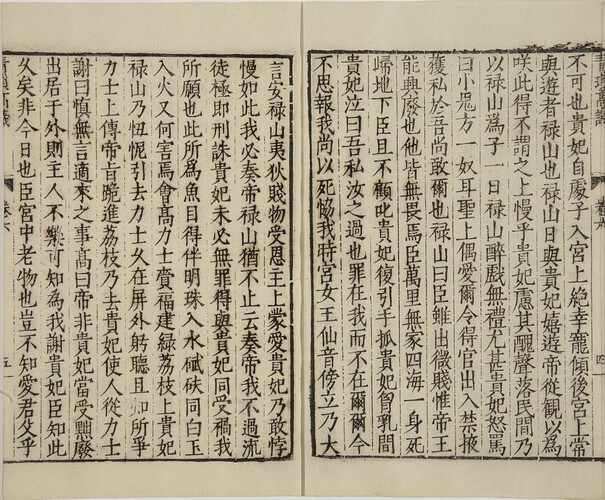 不可也貴妃自處子入宮上絶幸寵傾後宮上常
與遊者祿山也祿山日與貴妃嬉遊帝從觀以為
咲此得不謂之上慢乎貴妃慮其醜聲落民間乃
以祿山為子一日祿山醉戲無禮尤甚貴妃怒罵
曰小鬼方一奴耳聖上偶愛爾今得官出入禁掖
獲私於吾尚敢爾也祿山曰臣雖出微賤惟帝王
能興廢也他皆無畏焉臣萬里無家四海一身死
歸地下臣且不顧叱貴妃復引手抓貴妃胷乳間
貴妃泣曰吾私汝之過也罪在我而不在爾爾今
不思報我尚以死恊我時宮女王仙音傍立乃大
四
言安祿山夷狄賤物受恩主上蒙愛貴妃乃敢悖
慢如此我必奏帝祿山猶不止云奏帝我不過流
徒極即刑誅貴妃未必無罪得與貴妃同受禍我
所願也此所為魚目得伴明珠入水碔砆同白玉
入火又何害焉會高力士賫福建綠荔枝上貴妃
祿山乃忸怩引去力士久在屏外躬聽且知所爭
力士上傳帝旨跪進荔枝乃去貴妃使人從力士
謝曰慎無言適來之事高曰帝非貴妃當受黜廢
出居于外則主人不樂可知為我謝貴妃臣知此
久矣非今日也臣宮中老物也豈不知愛君父乎
卷六
五